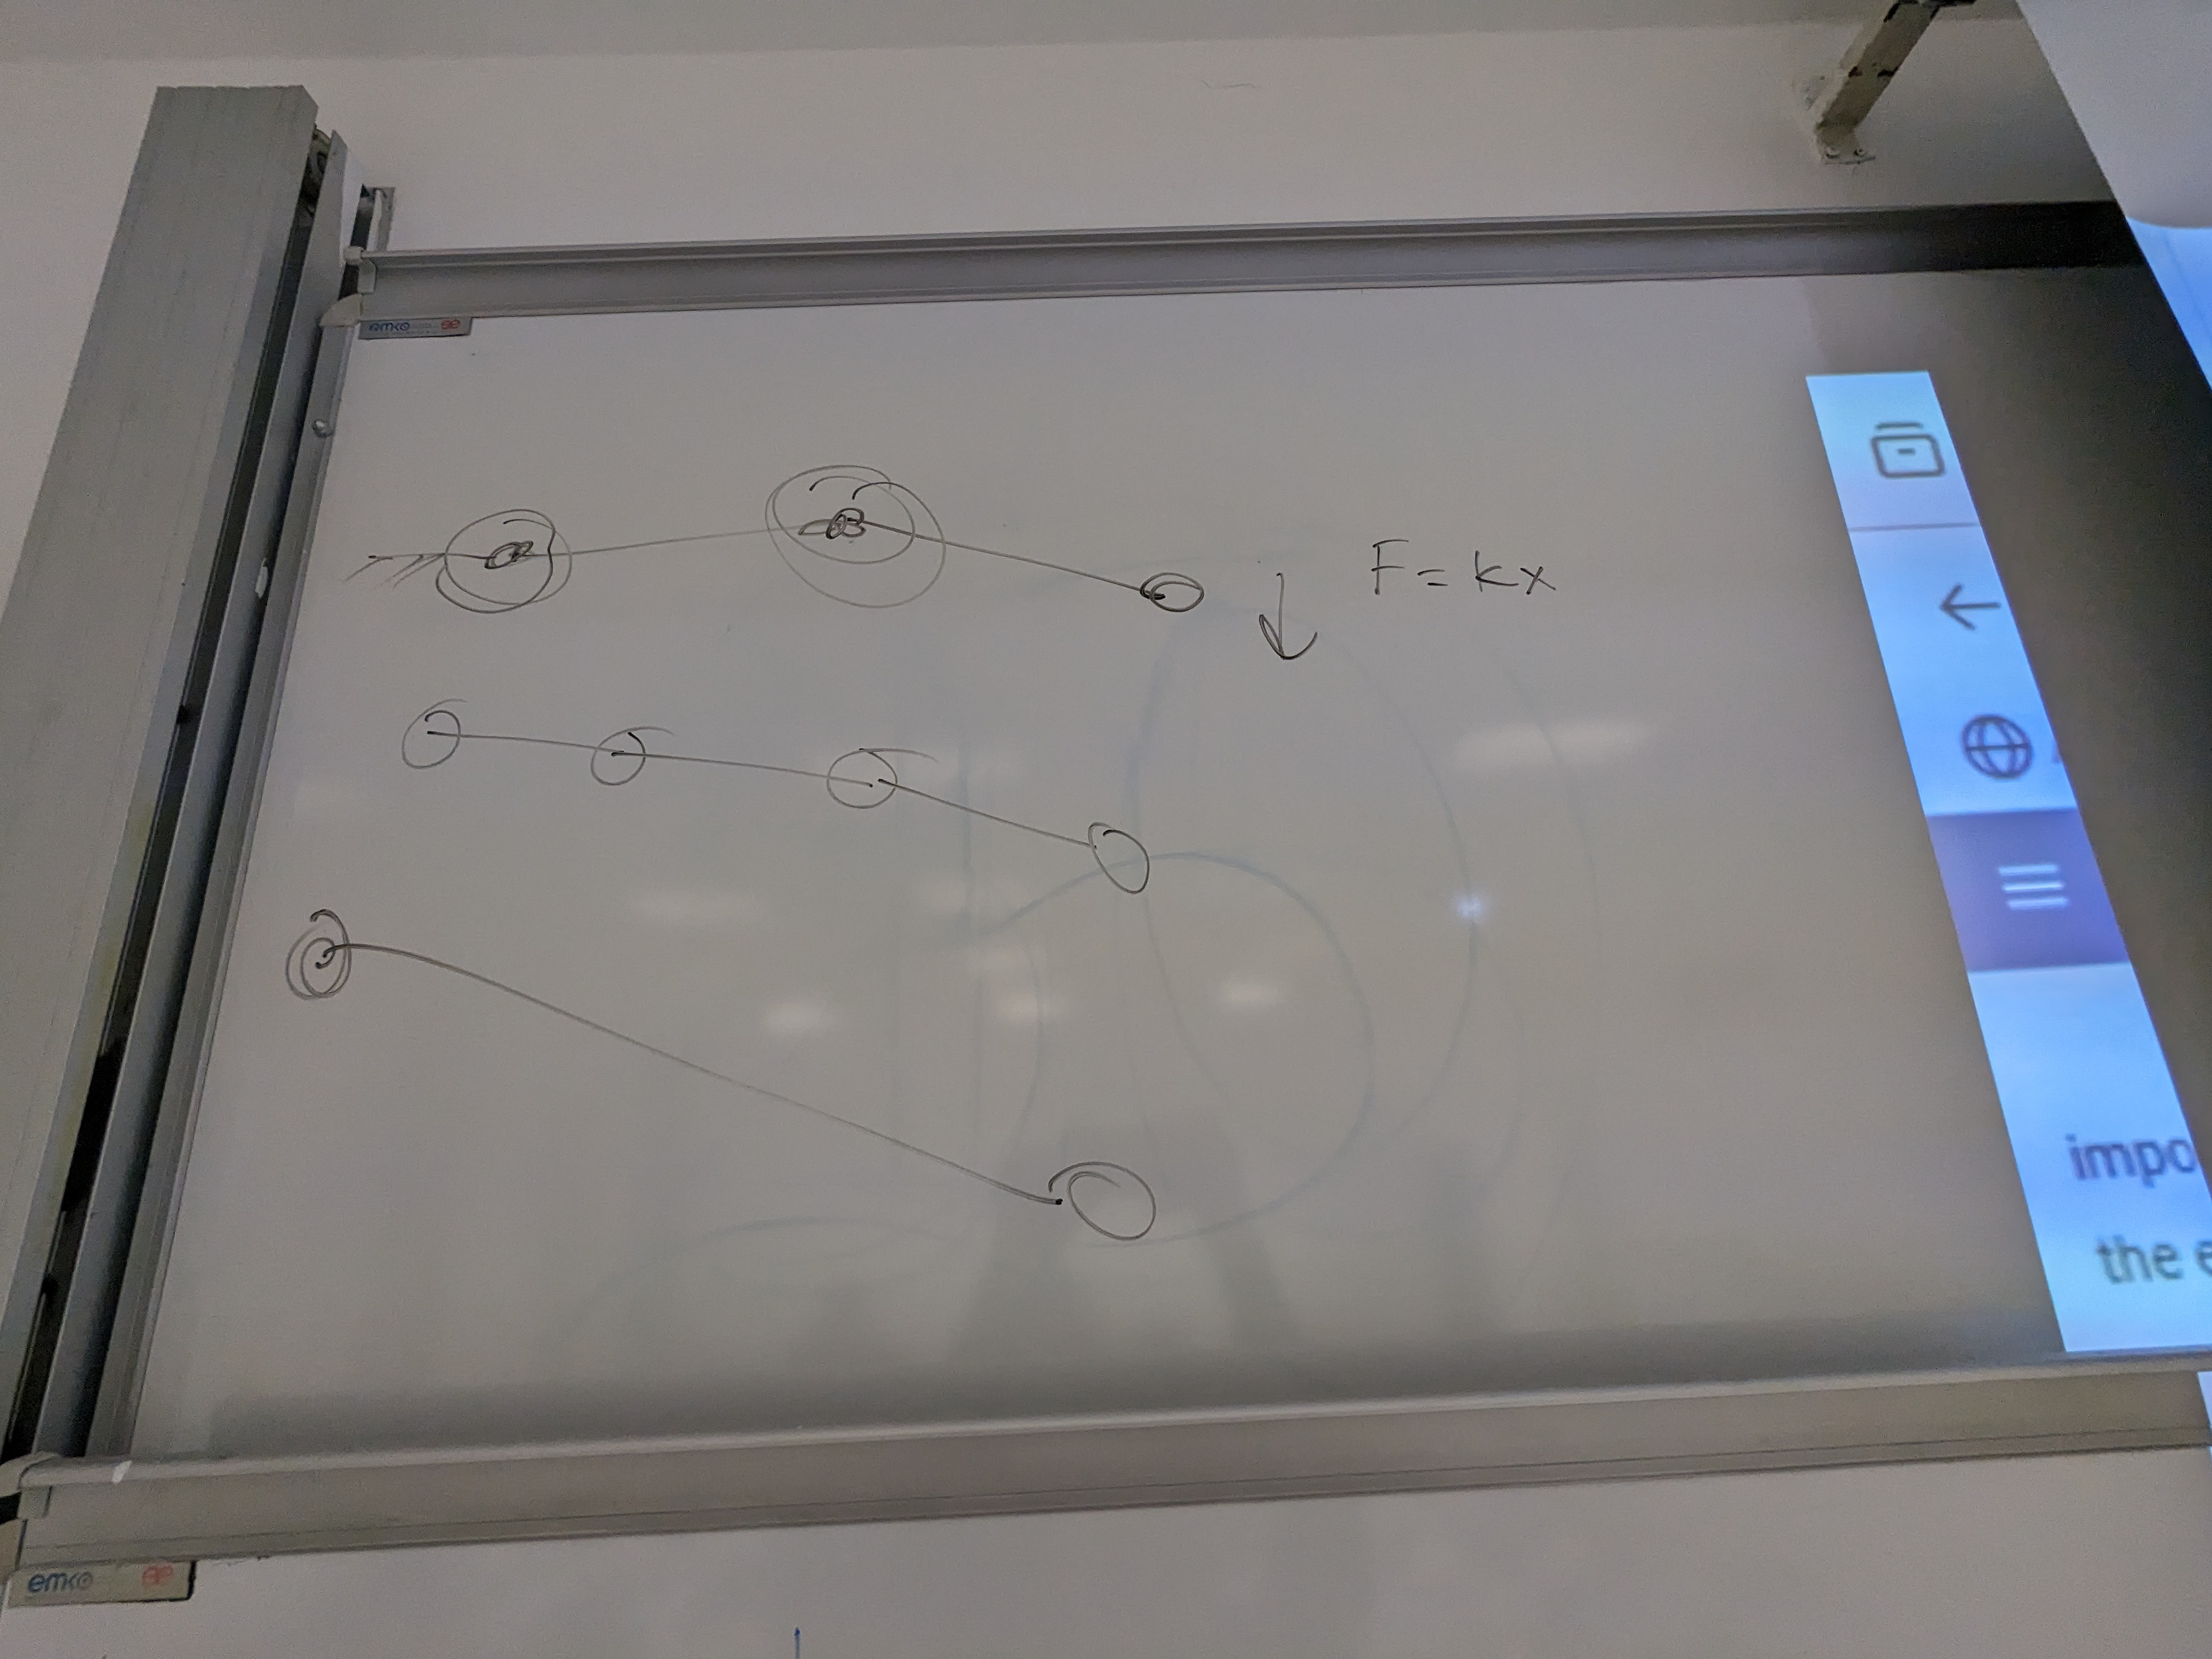 emko
F = kx
impo
the e
emko